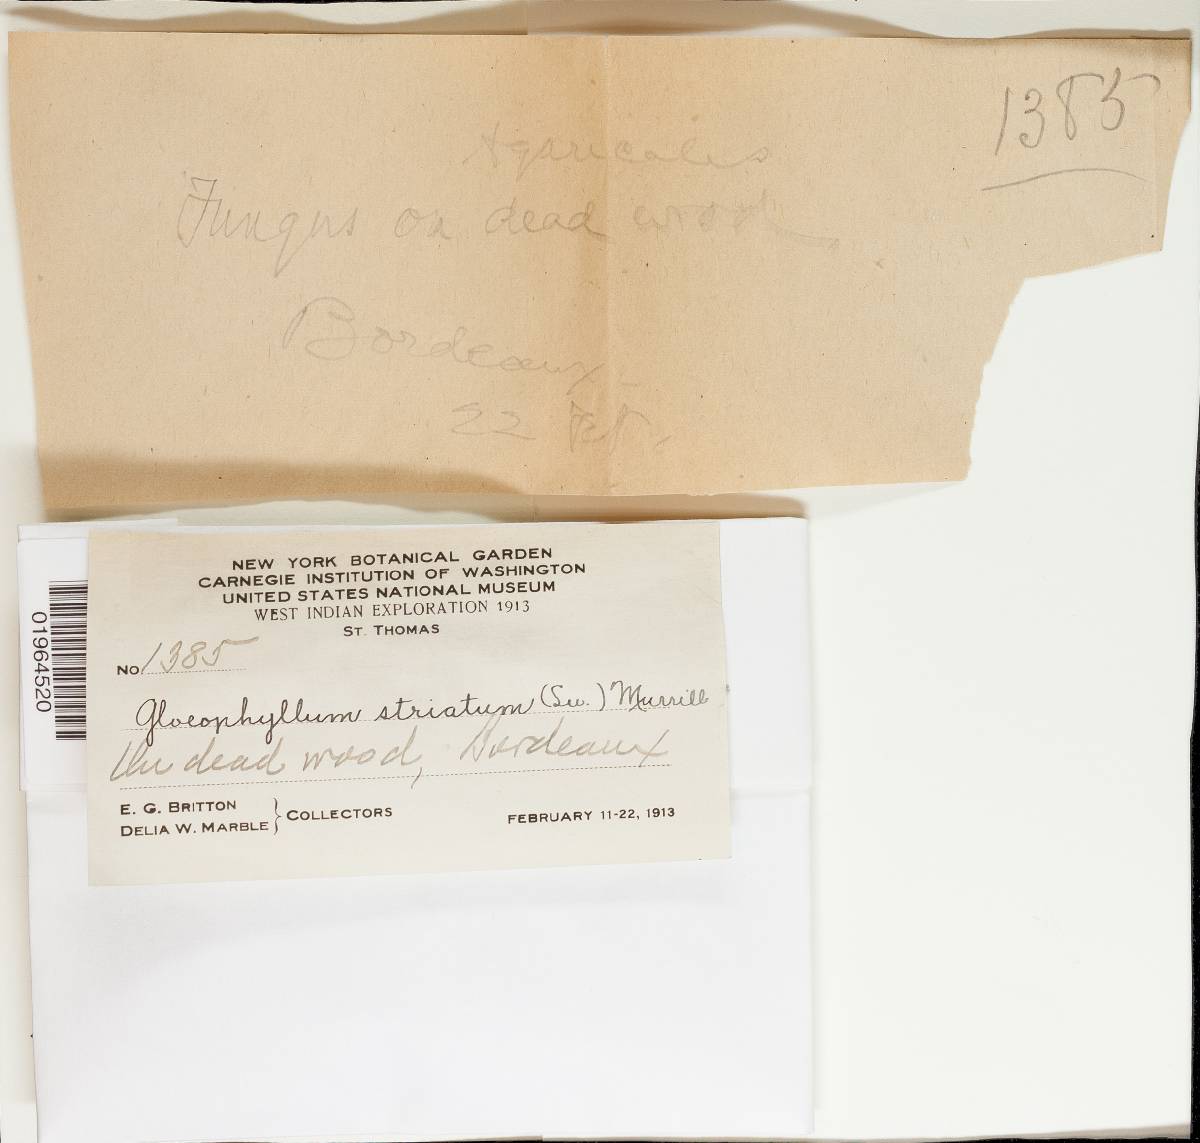 1385
Agaricales
Fungus on dead wood.
Bordeaux
22 Feb.
NEW YORK BOTANICAL GARDEN
CARNEGIE INSTITUTION OF WASHINGTON
UNITED STATES NATIONAL MUSEUM
WEST INDIAN EXPLORATION 1913
ST. THOMAS
No. 1385
Gloeophyllum striatum (Sw.) Murrill
On dead wood, Bordeaux
E. G. BRITTON
DELIA W. MARBLE } COLLECTORS
FEBRUARY 11-22, 1913
01964520